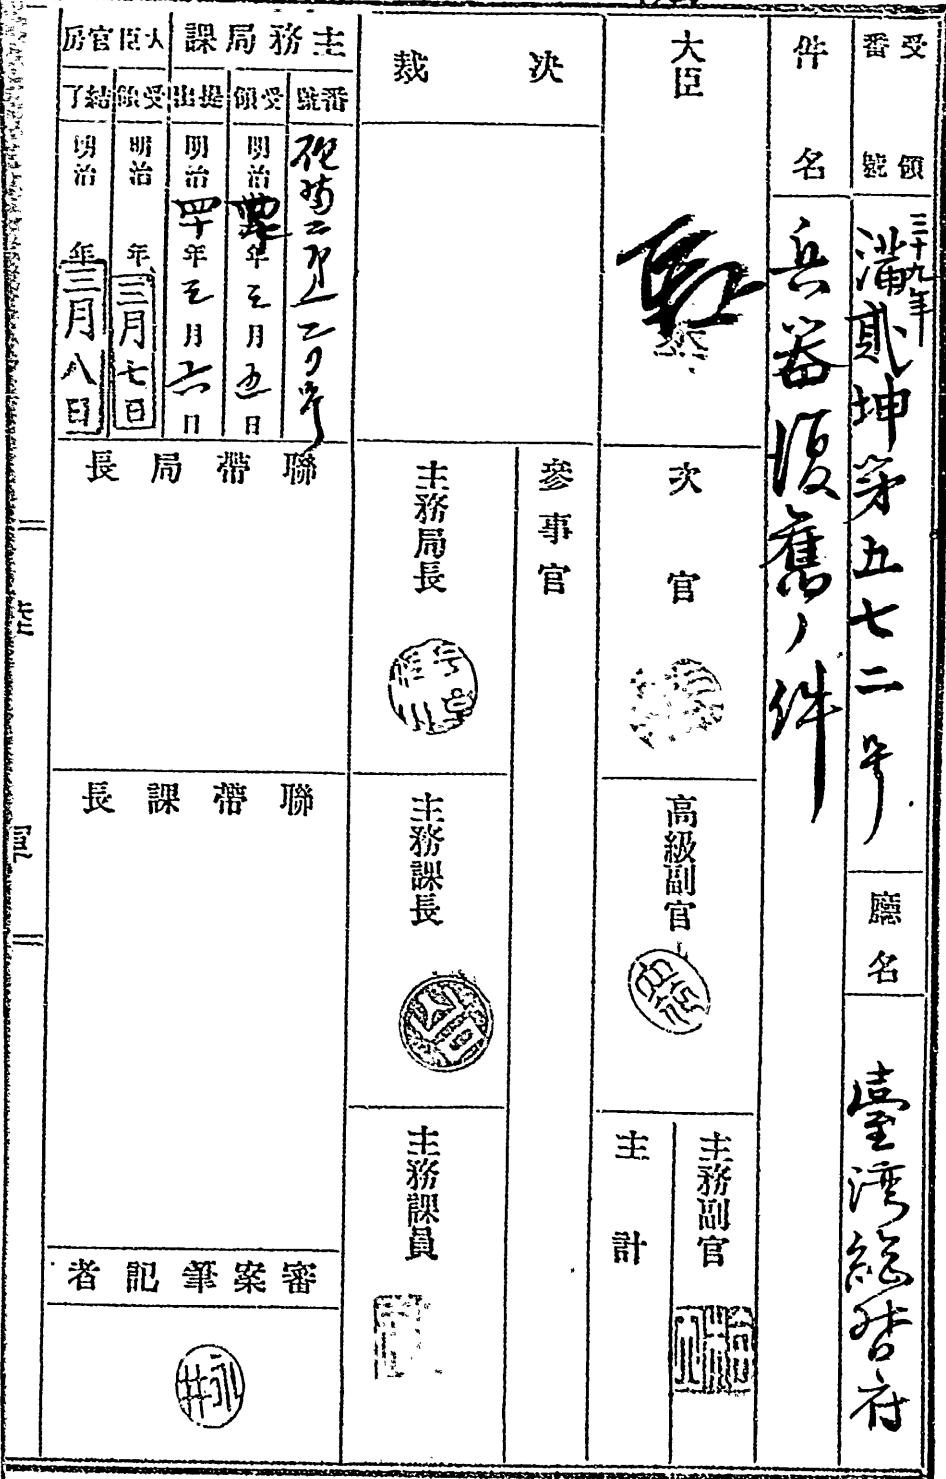 受領番號
三十九年
満貳坤第五七二号
廳名
臺湾総督府
件名
兵器復舊ノ件
大臣
次官
高級副官
主務副官
主計
決裁
參事官
主務局長
主務課長
主務課員
主務局課
番號
受領
明治四十年三月五日
提出
明治四十年三月六日
大臣官房
受領
明治 年三月七日
結了
明治 年三月八日
聯帶局長
聯帶課長
審案筆記者
永井
陸軍